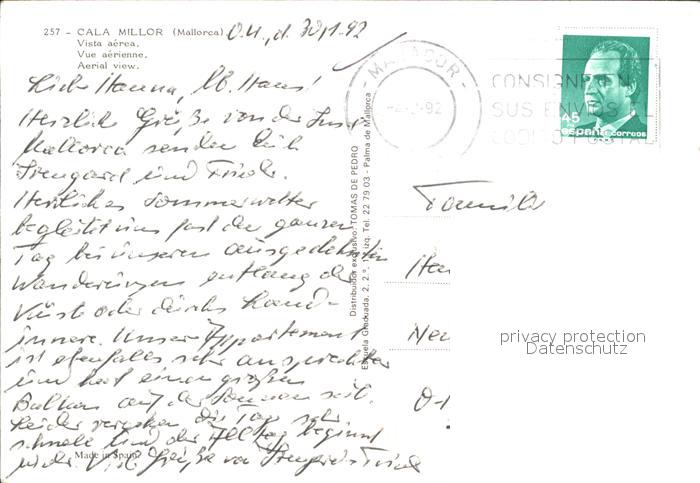 257 - CALA MILLOR (Mallorca)
Vista aérea.
Vue aérienne.
Aerial view.
30/1.92
Liebe Hanna, lb. Hans!
Herzliche Grüße von der Insel
Mallorca senden Euch
Irmgard und Friedr.
Herrliches Sommerwetter
begleitet uns fast den ganzen
Tag bei unseren ausgedehnten
Wanderungen entlang der
Küste oder durchs Land-
innere. Unser Appartement
ist ebenfalls sehr ansprechend
und hat einen großen
Balkon auf der Sonnenseite.
Leider vergehen die Tage sehr
schnell und der Alltag beginnt
wieder. Viele Grüße von Irmgard + Friedr
Made in Spain
Distribuidor exclusivo: TOMAS DE PEDRO
Escuela Graduada, 2, 2.º, 1.ª izq. Tel. 22 79 03 - Palma de Mallorca
MANACOR
-92
CONSIGNE EN
SUS ENVIOS EL
CODIGO POSTAL
45
PTA
españa correos
Familie
Han
Neu
privacy protection
Datenschutz